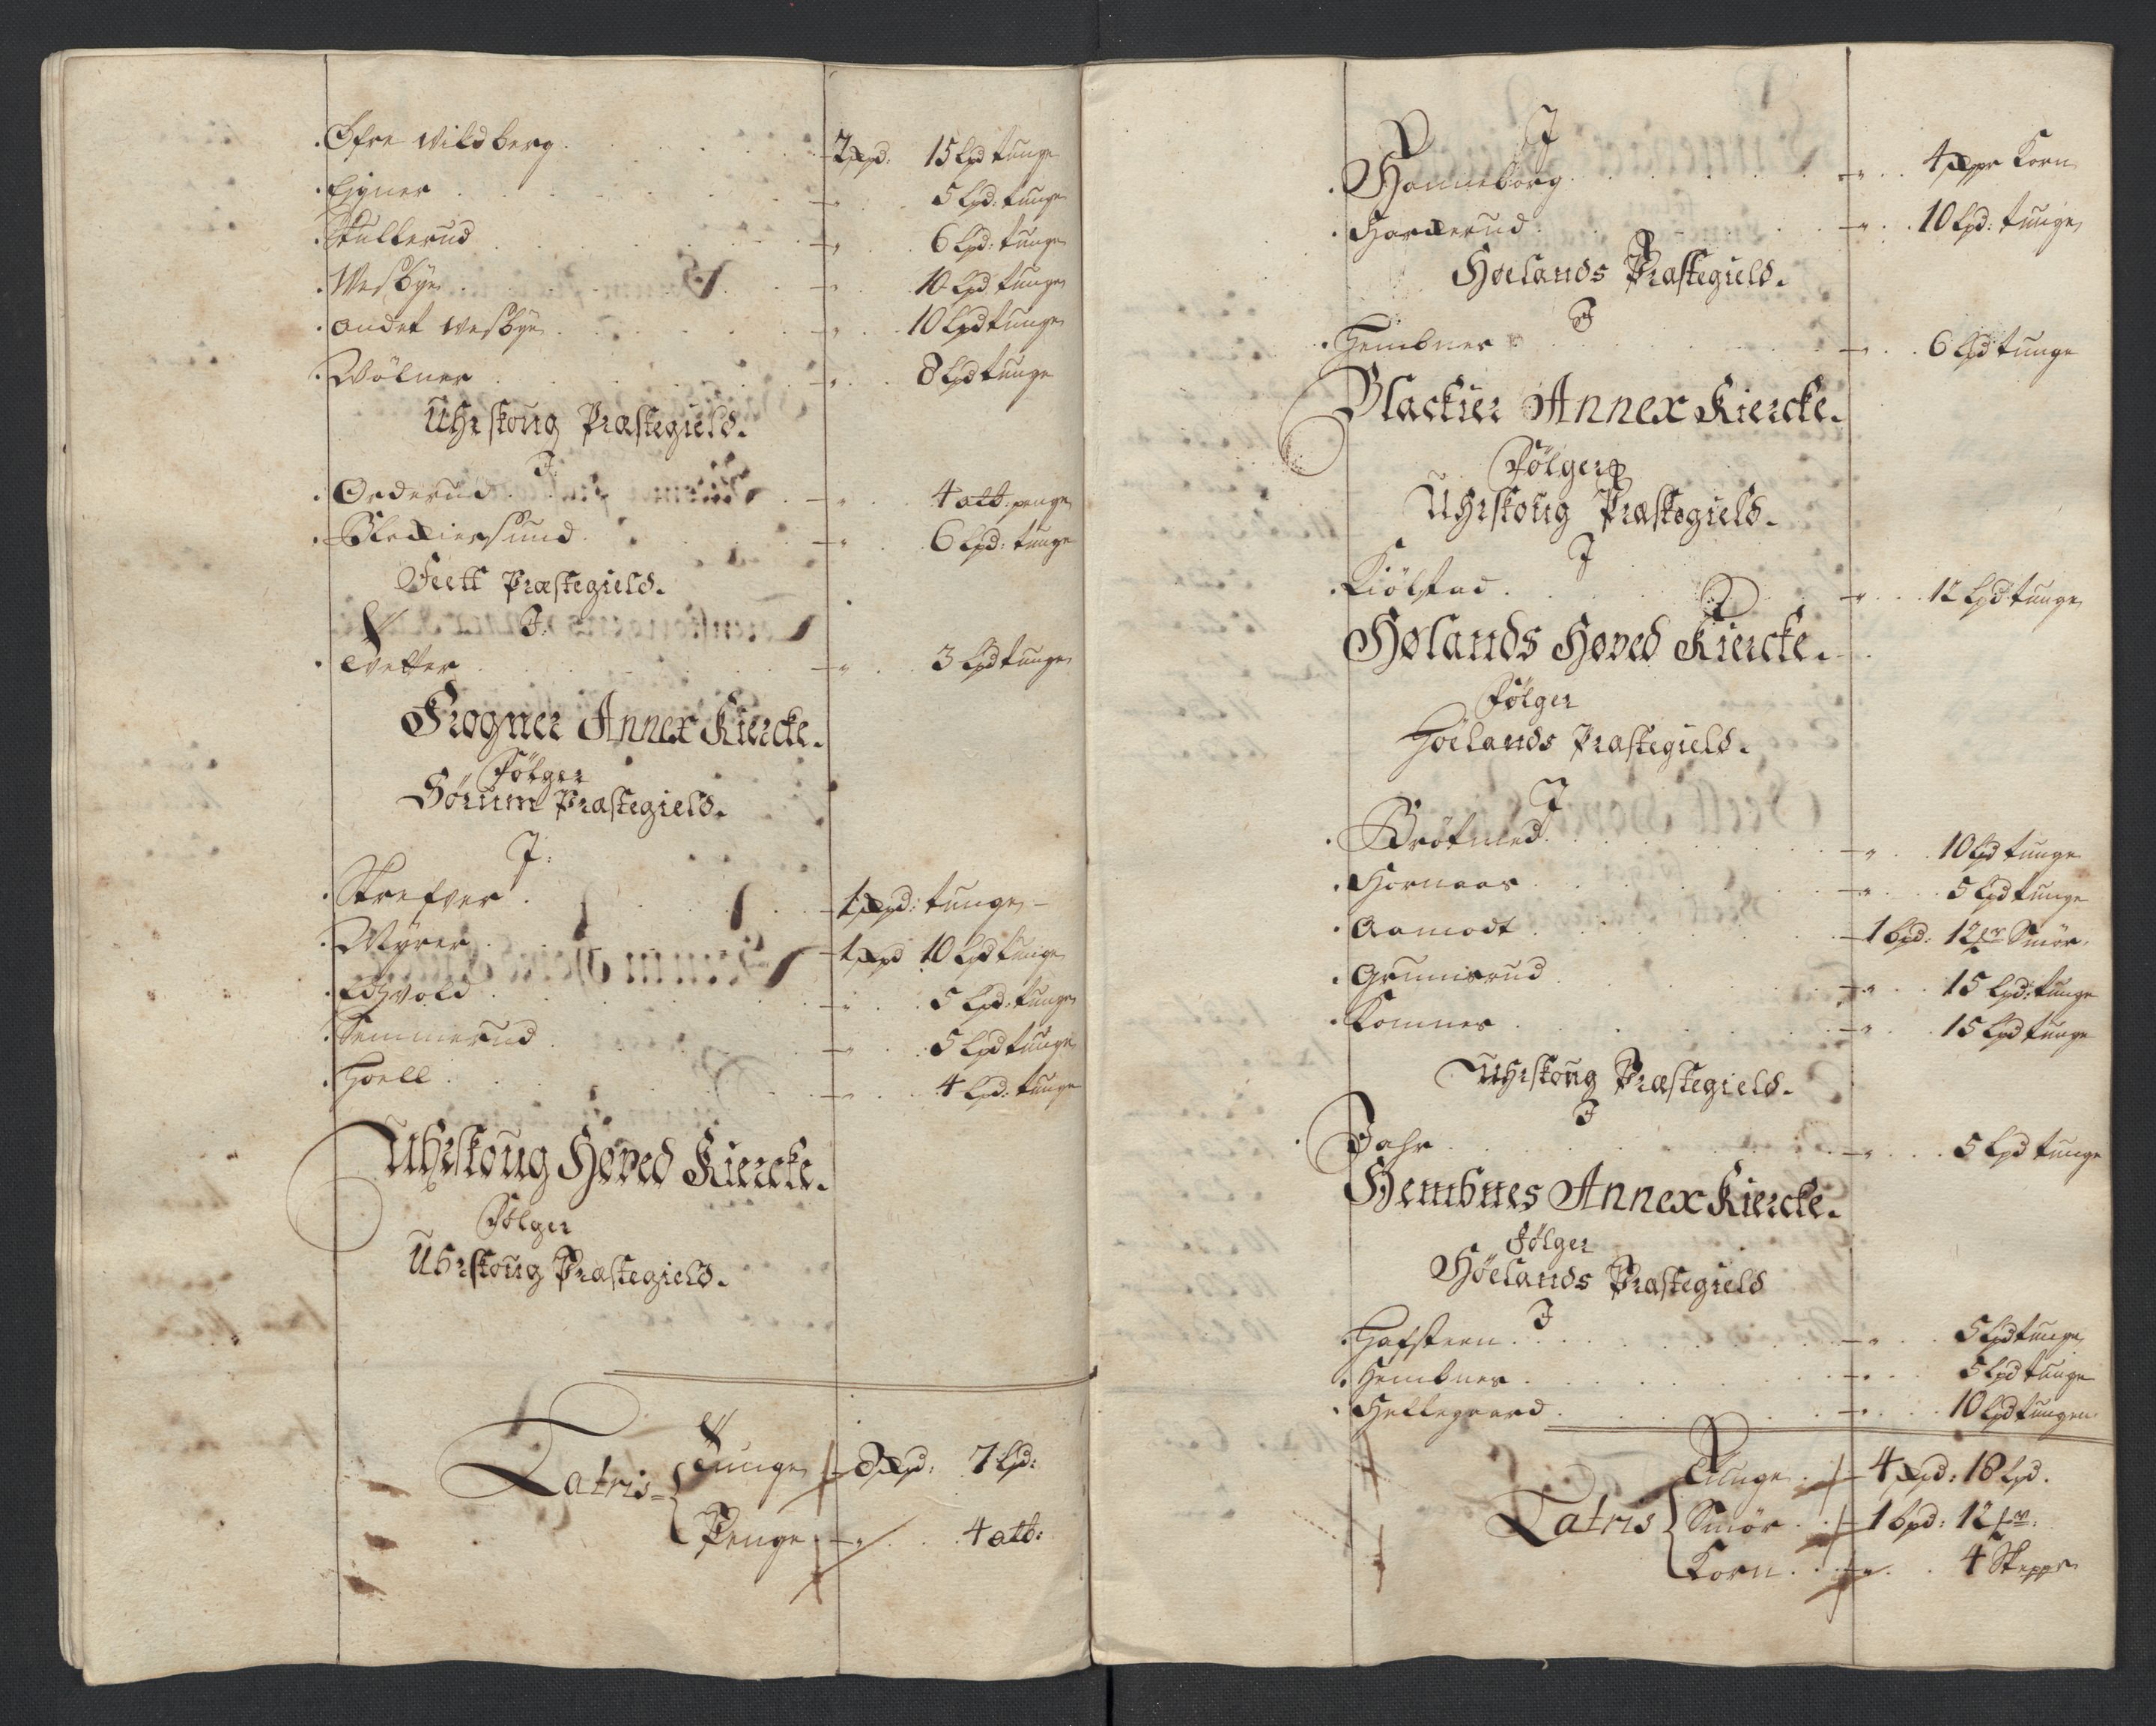 Øfre Wildberg . . . 2 xpd: 15 Lpd tunge
Eigner . . . " 5 Lpd: tunge
Kullerud . . . " 6 Lpd: tunge
Wesbye . . . " 10 Lpd tunge
andet Wesbye . . . " 10 Lpd tunge
Wølner . . . " 8 Lpd tunge
Uhrskoug Præstegield.
J:
Orderud . . . " 4 alb. penge
Blexiersund . . . " 6 Lpd: tunge
Feett Præstegield.
J:
Tvetter . . . " 3 Lpd tunge
Frogner Annex Kiercke.
Følger
Sørum Præstegield.
J:
Refver . . . 1 xpd: tunge
Myrer . . . 1 xpd 10 Lpd tunge
Edsvold . . . " 5 Lpd: tunge
Remmerud . . . " 5 Lpd tunge
Hoell . . . " 4 Lpd: tunge
Uhrskoug Hoved Kiercke.
Følger
Uhrskoug Præstegield.
Latris
Tunge 8 xpd: 7 Lpd:
Penge " 4 alb:
J
Hanneborg . . . " 4 xppr Korn
Harxerud . . . " 10 Lpd: tunge
Høelands Præstegield.
J
Hembnes . . . " 6 Lpd tunge
Blackier Annex Kiercke.
Følger
Uhrskoug Præstegield.
J
Kiølstad . . . " 12 Lpd tunge
Hølands Hoved Kiercke.
Følger
Høelands Præstegield.
J
Brøtmed . . . " 10 Lpd tunge
Hornaas . . . " 5 Lpd tunge
Aamodt . . . 1 bpd: 12 mr Smør.
Grumsrud . . . " 15 Lpd: tunge
Komnes . . . " 15 Lpd tunge
Uhrskoug Præstegield.
J
Jahr . . . " 5 Lpd tunge
Hembnes Annex Kiercke.
Følger
Høelands Præstegield
J
Hafsteen . . . " 5 Lpd tunge
Hembnes . . . " 5 Lpd tunge
Hellegaard . . . " 10 Lpd tungen
Latris
Tunge . 4 xpd: 18 Lpd.
Smør . . 1 bpd: 12 mr.
Korn . . . " 4 Skeppe